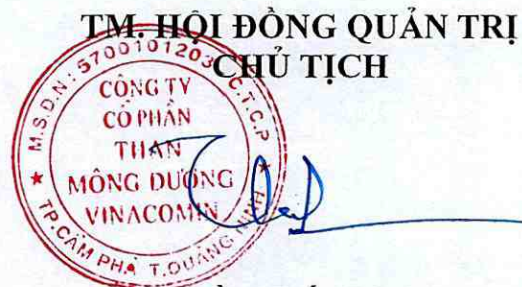 TM. HỘI ĐỒNG QUẢN TRỊ
CHỦ TỊCH
M.S.D.N: 570010120 C.T.C.P
CÔNG TY
CỔ PHẦN
THAN
MÔNG DƯƠNG
VINACOMIN
TP.CẨM PHẢ T.QUẢNG NINH